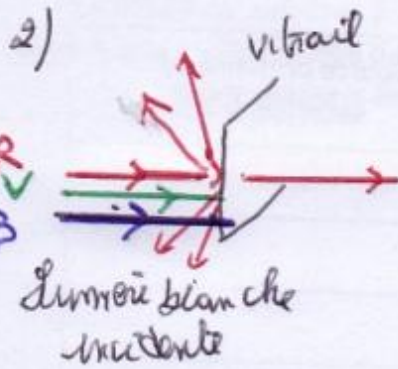 2)
vitrail
R
V
B
Lumière blanche
incidente